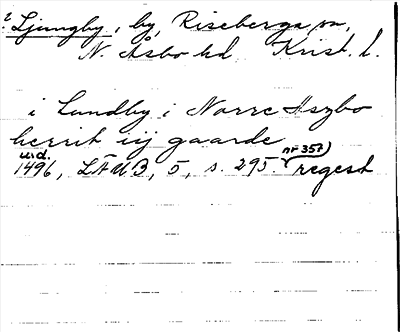 ? Ljungby, by, Riseberga sn,
N. Åsbo hd Krist. l.
i Lundby i Norre Aszbo
herrit iij gaarde
u.d.
1496, LÄUB, 5, s. 295. nr 357) regest